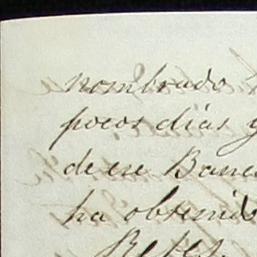 nombrado
pocos días y
de ese Banco
ha obtenido